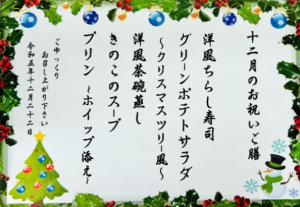 十二月のお祝いご膳
洋風ちらし寿司
グリーンポテトサラダ
～クリスマスツリー風～
洋風茶碗蒸し
きのこのスープ
プリン ～ホイップ添え～
ごゆっくり
お召し上がり下さい
令和五年十二月二十二日